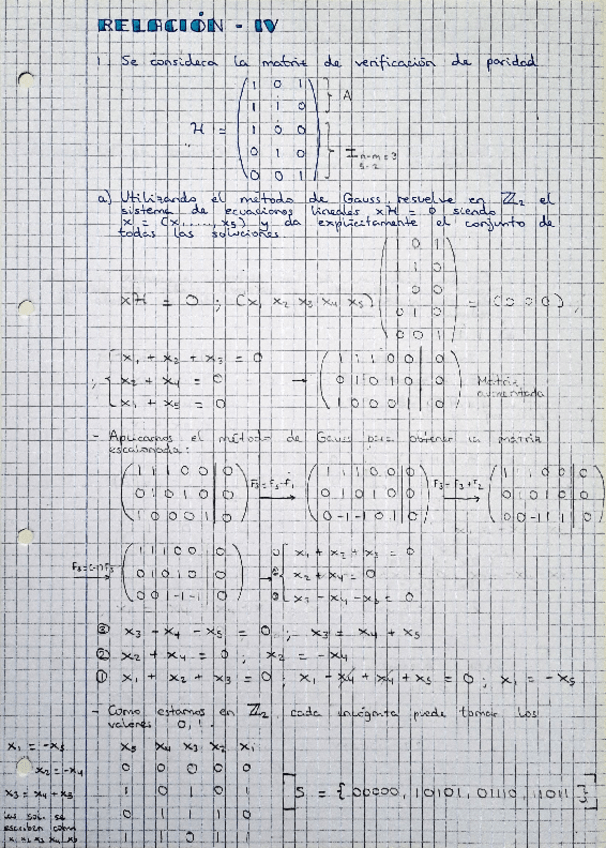 RELACIÓN - IV
1. Se considera la matriz de verificación de paridad
H = ( 1 0 1
1 1 0
1 0 0
0 1 0
0 0 1 )
} A
} I n-m=3
5-2
a) Utilizando el método de Gauss, resuelve en ℤ2 el
sistema de ecuaciones lineales, xH = 0 siendo
x = (x1, ..., x5) y da explícitamente el conjunto de
todas las soluciones.
xH = 0 ; (x1 x2 x3 x4 x5) ( 1 0 1
1 1 0
1 0 0
0 1 0
0 0 1 ) = (0 0 0) ;
{ x1 + x2 + x3 = 0
x2 + x4 = 0
x1 + x5 = 0
→ ( 1 1 1 0 0 | 0
0 1 0 1 0 | 0
1 0 0 0 1 | 0 )
Matriz
aumentada
- Aplicamos el método de Gauss para obtener la matriz
escalonada:
( 1 1 1 0 0 | 0
0 1 0 1 0 | 0
1 0 0 0 1 | 0 )
F3=F3-F1 →
( 1 1 1 0 0 | 0
0 1 0 1 0 | 0
0 -1 -1 0 1 | 0 )
F3=F3+F2 →
( 1 1 1 0 0 | 0
0 1 0 1 0 | 0
0 0 -1 1 1 | 0 )
F3=(-1)F3 →
( 1 1 1 0 0 | 0
0 1 0 1 0 | 0
0 0 1 -1 -1 | 0 )
→ ① { x1 + x2 + x3 = 0
② x2 + x4 = 0
③ x3 - x4 - x5 = 0
③ x3 - x4 - x5 = 0 ; x3 = x4 + x5
② x2 + x4 = 0 ; x2 = -x4
① x1 + x2 + x3 = 0 ; x1 - x4 + x4 + x5 = 0 ; x1 = -x5
- Como estamos en ℤ2, cada incógnita puede tomar los
valores 0,1.
x1 = -x5
x2 = -x4
x3 = x4 + x5
Las sol. se
escriben como
x1 x2 x3 x4 x5
x5 x4 x3 x2 x1
0 0 0 0 0
1 0 1 0 1
0 1 1 1 0
1 1 0 1 1
S = {00000, 10101, 01110, 11011}